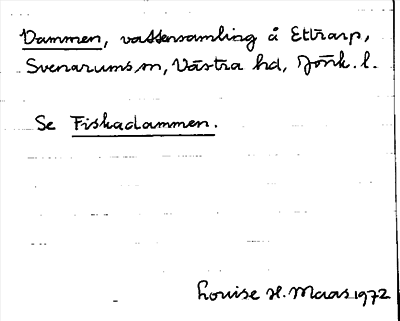 Dammen, vattensamling å Ettrarp,
Svenarums sn, Västra hd, Jönk. l.
Se Fiskadammen.
Louise H. Maas 1972